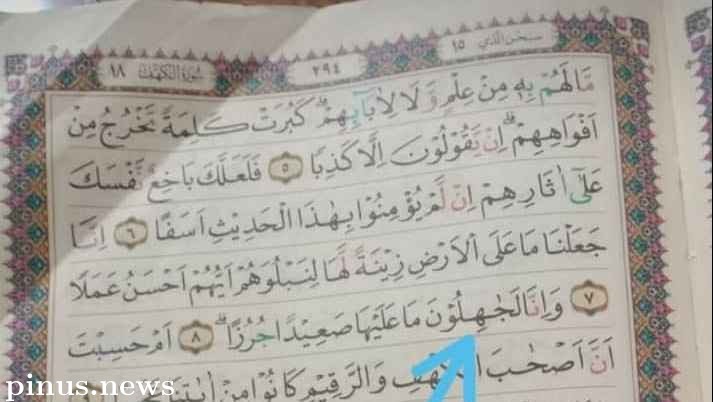 سُبْحٰنَ الَّذِيْ ١٥ ٢٩٤ سُوْرَةُ الْكَهْفِ ١٨
مَا لَهُمْ بِهٖ مِنْ عِلْمٍ وَّلَا لِاٰبَاۤىِٕهِمْۗ كَبُرَتْ كَلِمَةً تَخْرُجُ مِنْ
اَفْوَاهِهِمْۗ اِنْ يَّقُوْلُوْنَ اِلَّا كَذِبًا ٥ فَلَعَلَّكَ بَاخِعٌ نَّفْسَكَ
عَلٰٓى اٰثَارِهِمْ اِنْ لَّمْ يُؤْمِنُوْا بِهٰذَا الْحَدِيْثِ اَسَفًا ٦ اِنَّا
جَعَلْنَا مَا عَلَى الْاَرْضِ زِيْنَةً لَّهَا لِنَبْلُوَهُمْ اَيُّهُمْ اَحْسَنُ عَمَلًا
٧ وَاِنَّا لَجٰهِلُوْنَ مَا عَلَيْهَا صَعِيْدًا جُرُزًاۗ ٨ اَمْ حَسِبْتَ
اَنَّ اَصْحٰبَ وَالرَّقِيْمِ كَانُوْا مِنْ
pinus.news